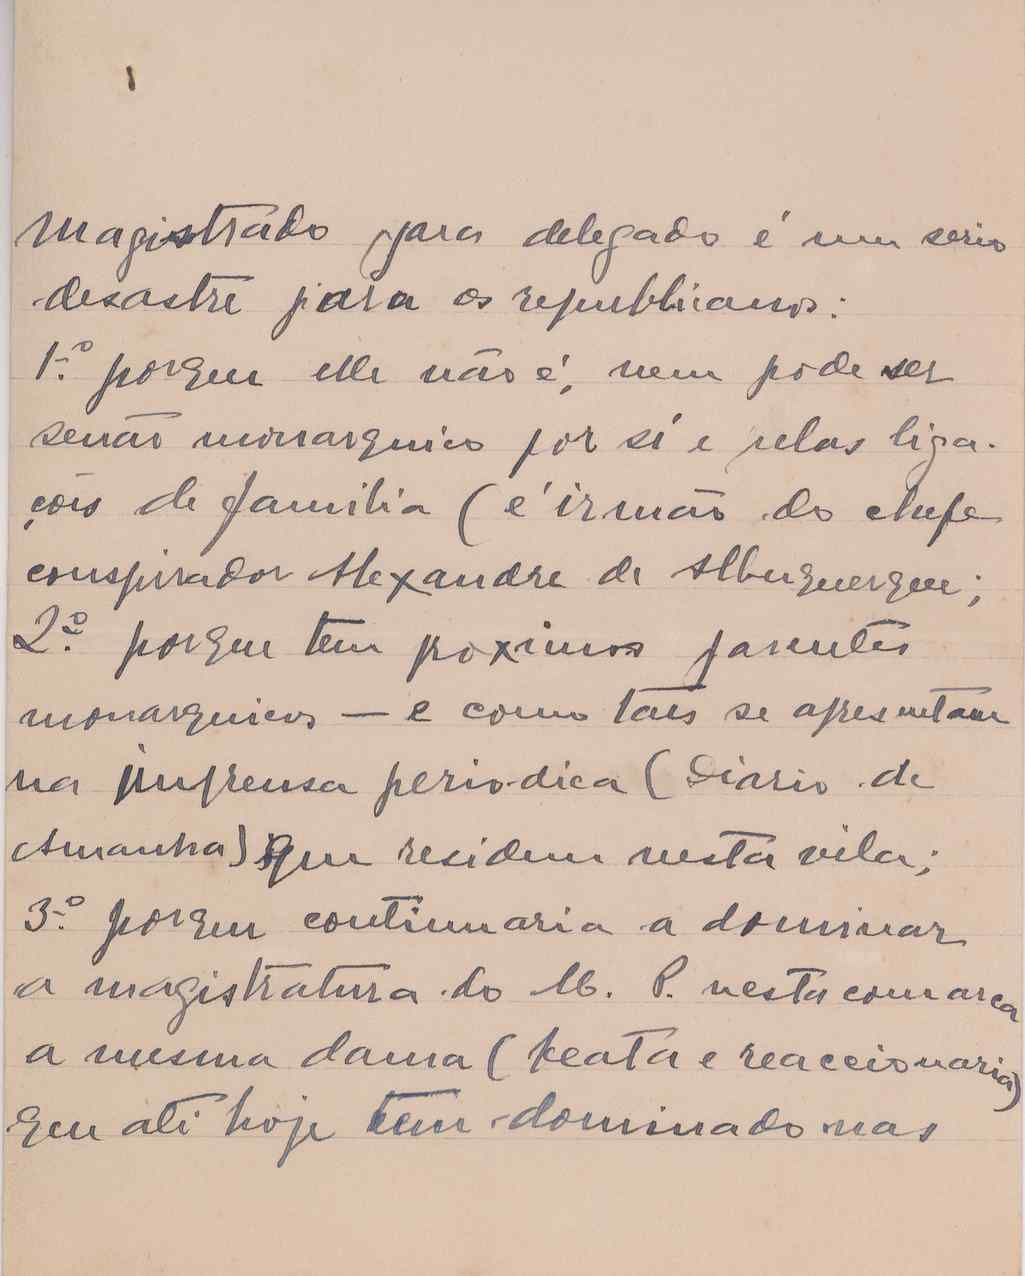 magistrado para delegado é um serio
desastre para os republicanos:
1.º porque elle não é, nem pode ser
senão monarquico por si e pelas liga-
ções de familia (é irmão do chefe
conspirador Alexandre de Albuquerque;
2.º porque tem proximos parentes
monarquicos — e como taes se apresentam
na imprensa periodica (Diario de
Amanhã) que residem nesta vila;
3.º porque continuaria a dominar
a magistratura do M. P. nesta comarca
a mesma dama (beata e reaccionaria)
que até hoje tem dominado nas